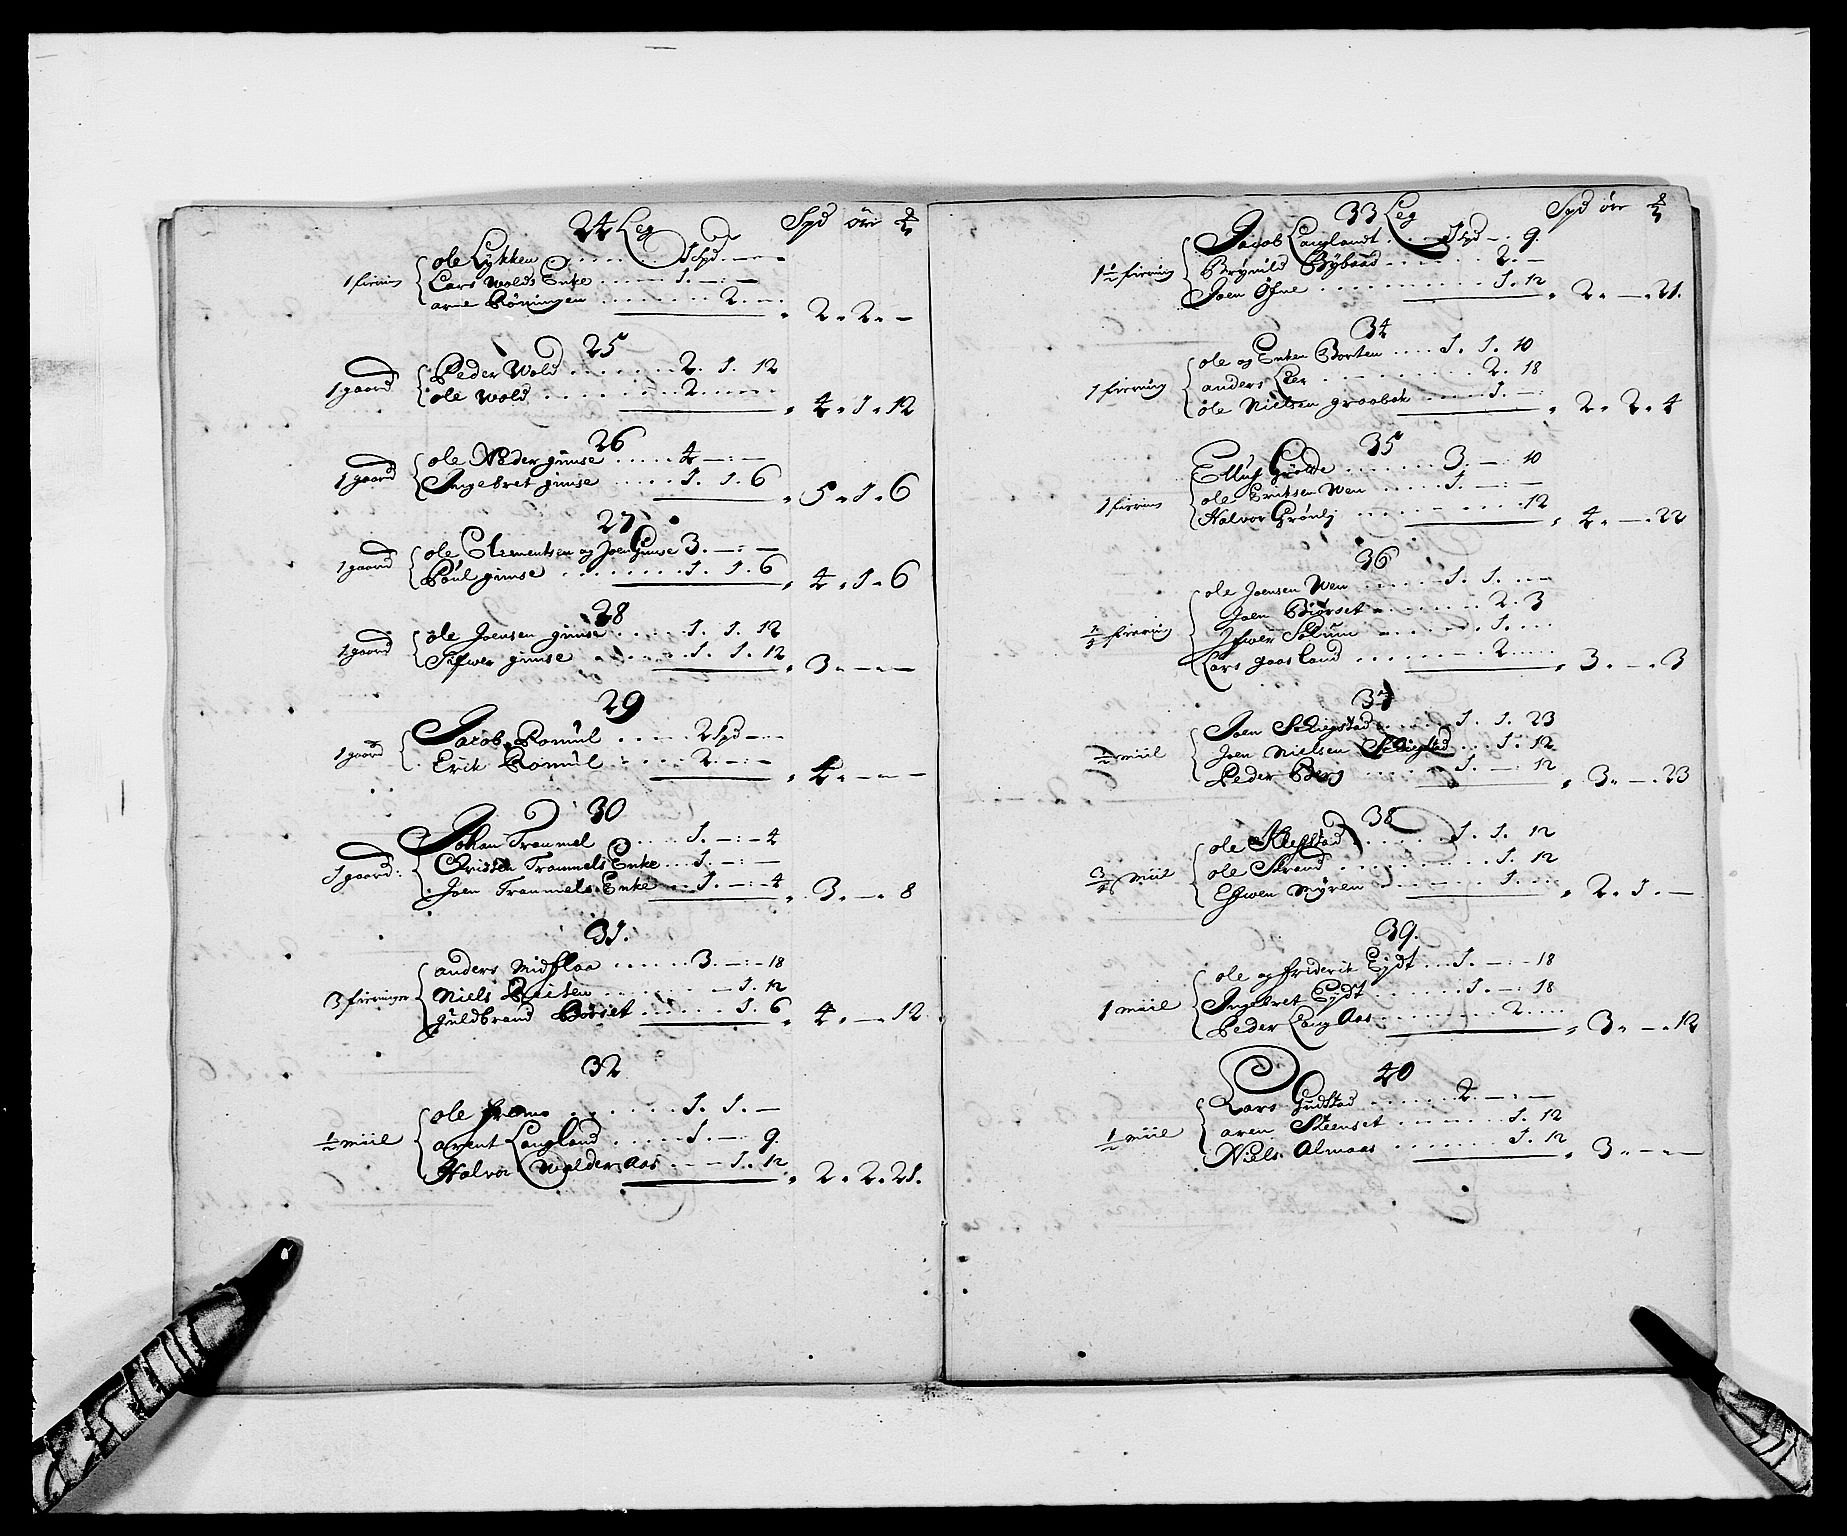 24 Leg Spd öre
ole Lykken . . . . . . . 1 Spd. – – –
1 fiering Lars Wolds Enke . . . . . 1. – : –
arne Röningen . . . . . . . . 2. – . 2 . 2 . –
25
Peder Wold . . . . . . . 2. 1. 12
1 gaard ole Wold . . . . . . . 2. . . . . 4 . 1 . 12
26
ole Nedergimse . . . . . 4 – : –
1 gaard Ingebret gimse . . . . . 1. 1. 6 . 5 . 1 . 6
27
ole Clementsen og Joen Gimse 3. – : –
1 gaard Poul gimse . . . . . . . 1. 1. 6 . 4 . 1 . 6
28
ole Joensen gimse . . . . . 1. 1. 12
1 gaard Sifwer gimse . . . . . 1. 1. 12 . 3 . – . –
29
Jacob Romül . . . . . 2 Spd – . –
1 gaard Erik Romül . . . . . 2. – : – . 4 . – . –
30
Johan Trammel . . . . . 1. – : – 4
1 gaard : Christen Trammels Enke . . 1. – : –
Joen Trammels Enke . . . 1. – : – 4 . 3 . – . 8
31.
anders Midflaa . . . . . . 3. – : – 18
3 fieringer Niels Reiten . . . . . . . – 1. 12
Güldbrand Börset . . . . . . 1. 6 . 4 . – . 12
32
ole fremo . . . . . . . 1. 1. –
1/2 miil arent Langland . . . . . 1. – 9.
Halvor Walders Aas . . . – 1. 12 . 2 . 2 . 21.
33 Leg Spd öre
Jacob Langlandt . . . 1 Spd – . 9.
1 1/2 fiering Brynild Bybaad . . . . . . . 2. –
Joen Ofne . . . . . . . . . . . 1. 12 . 2 . – . 21.
34
ole og Enken Borten . . . . 1. 1. 10
1 fiering anders Leer . . . . . . . . . . 2. 18
ole Nielsen graabak . . . . . 1. – : . 2 . 2 . 4
35
Elluf Grötte . . . . . . . 3. – : 10
1 fiering ole Eriksen Wen . . . . . 1. – : –
Halvor Grönli . . . . . . . . . 12 . 4 . – . 22
36
ole Joensen Wen . . . . . . 1. 1. . . –
Joen Biörset . . . . . . . . 2. 3
fiering Ifwer Solum . . . . . . . 1. . . .
Lars gaasland . . . . . . . . 2. . . . . 3 . – . 3
37
Joen Skiegstad . . . . . 1. 1. 23
1/2 miil Joen Nielsen Skiegstad . . . 1. 12
Peder Berg . . . . . . 1. – : 12 . 3 . – . 23
38
ole Klefstad . . . . . 1. 1. 12
3/4 miil ole Strand . . . . . . . . . . 1. 12
Esfwen Myren . . . . . . . 1. . . . 2 . 1 . –
39.
ole og friderik Eydt . . . 1. – : – 18
1 miil Ingebret Eydt . . . . . . . 1. – : 18
Peder Lang Aas . . . . . . . . . 2. . . . . 3 . – . 12
40
Lars Gudstad . . . . . . . 2. – : –
1/2 miil aren Steenset . . . . . . . . 1. 12
Niels Almaas . . . . . . . . 1. 12 . 3 . – . –